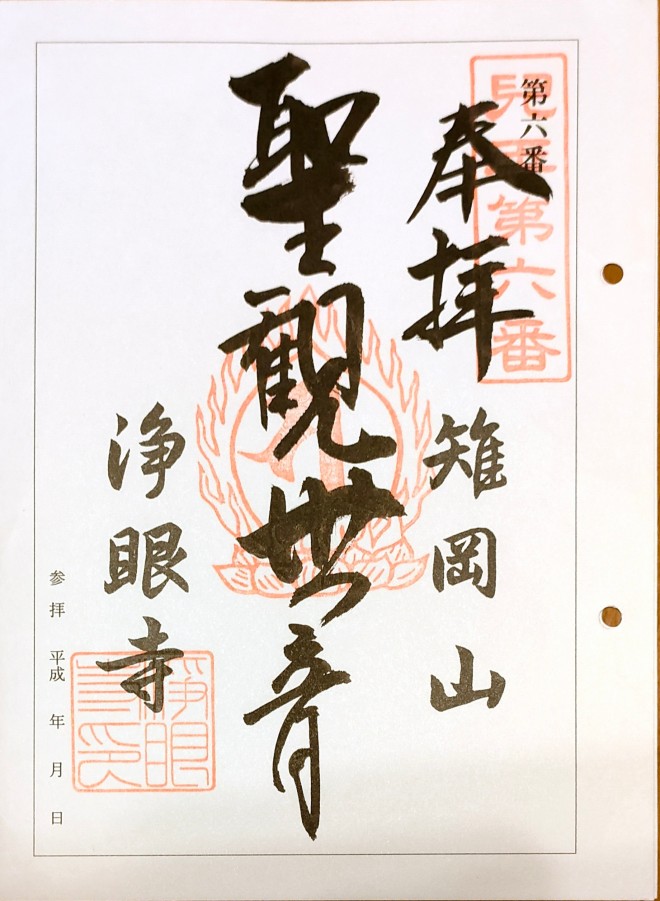 第六番
兒玉第六番
奉拝
雉岡山
聖観世音
浄眼寺
浄眼寺印
参拝 平成 年 月 日